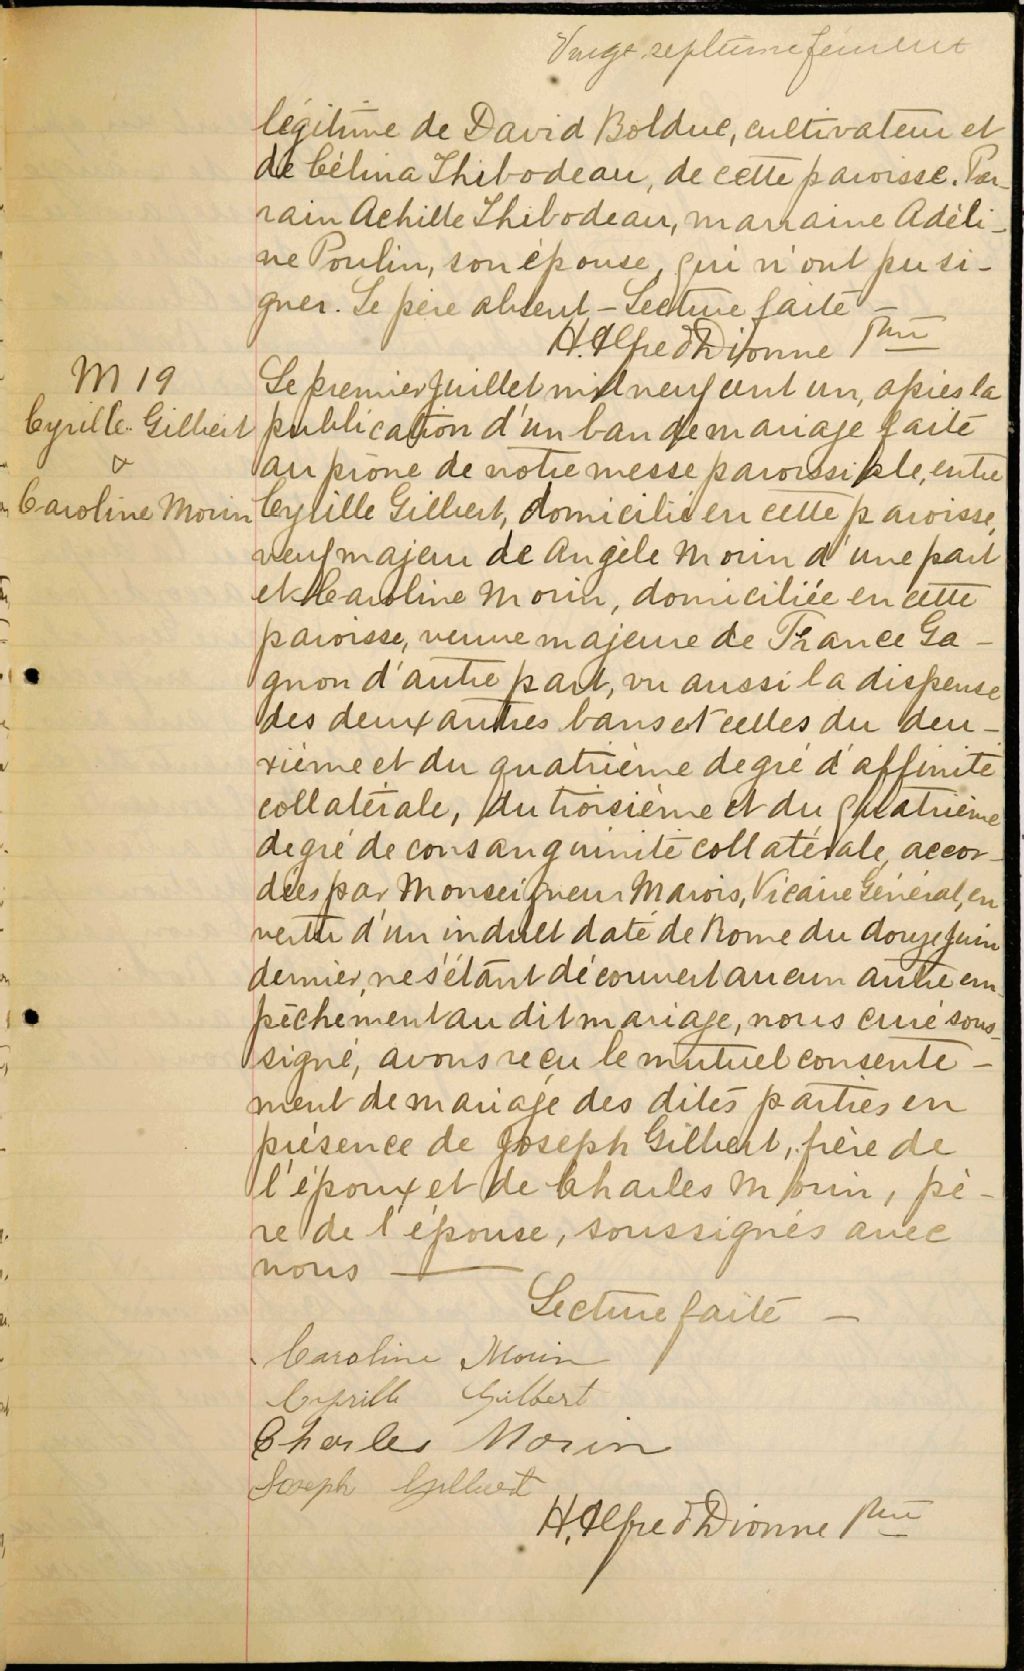 Vingt septième feuillet
légitime de David Bolduc, cultivateur et
de Célina Thibodeau, de cette paroisse. Par-
rain Achille Thibodeau, marraine Adéli-
ne Poulin, son épouse, qui n'ont pu si-
gner. Le père absent – Lecture faite –
H. Alfred Dionne Ptre
M 19
Cyrille Gilbert
&
Caroline Morin
Le premier Juillet mil neuf cent un, après la
publication d'un ban de mariage faite
au prône de notre messe paroissiale, entre
Cyrille Gilbert, domicilié en cette paroisse,
veuf majeur de Angèle Morin d'une part
et Caroline Morin, domiciliée en cette
paroisse, veuve majeure de France Ga-
gnon d'autre part, vu aussi la dispense
des deux autres bans et celles du deu-
xième et du quatrième degré d'affinité
collatérale, du troisième et du quatrième
degré de consanguinité collatérale, accor-
dées par Monseigneur Marois, Vicaire Général, en
vertu d'un indult daté de Rome du douze Juin
dernier, ne s'étant découvert aucun autre em-
pêchement au dit mariage, nous curé sous-
signé, avons reçu le mutuel consente-
ment de mariage des dites parties en
présence de Joseph Gilbert, frère de
l'époux et de Charles Morin, pè-
re de l'épouse, soussignés avec
nous —
Lecture faite –
Caroline Morin
Cyrille Gilbert
Charles Morin
Joseph Gilbert
H. Alfred Dionne Ptre